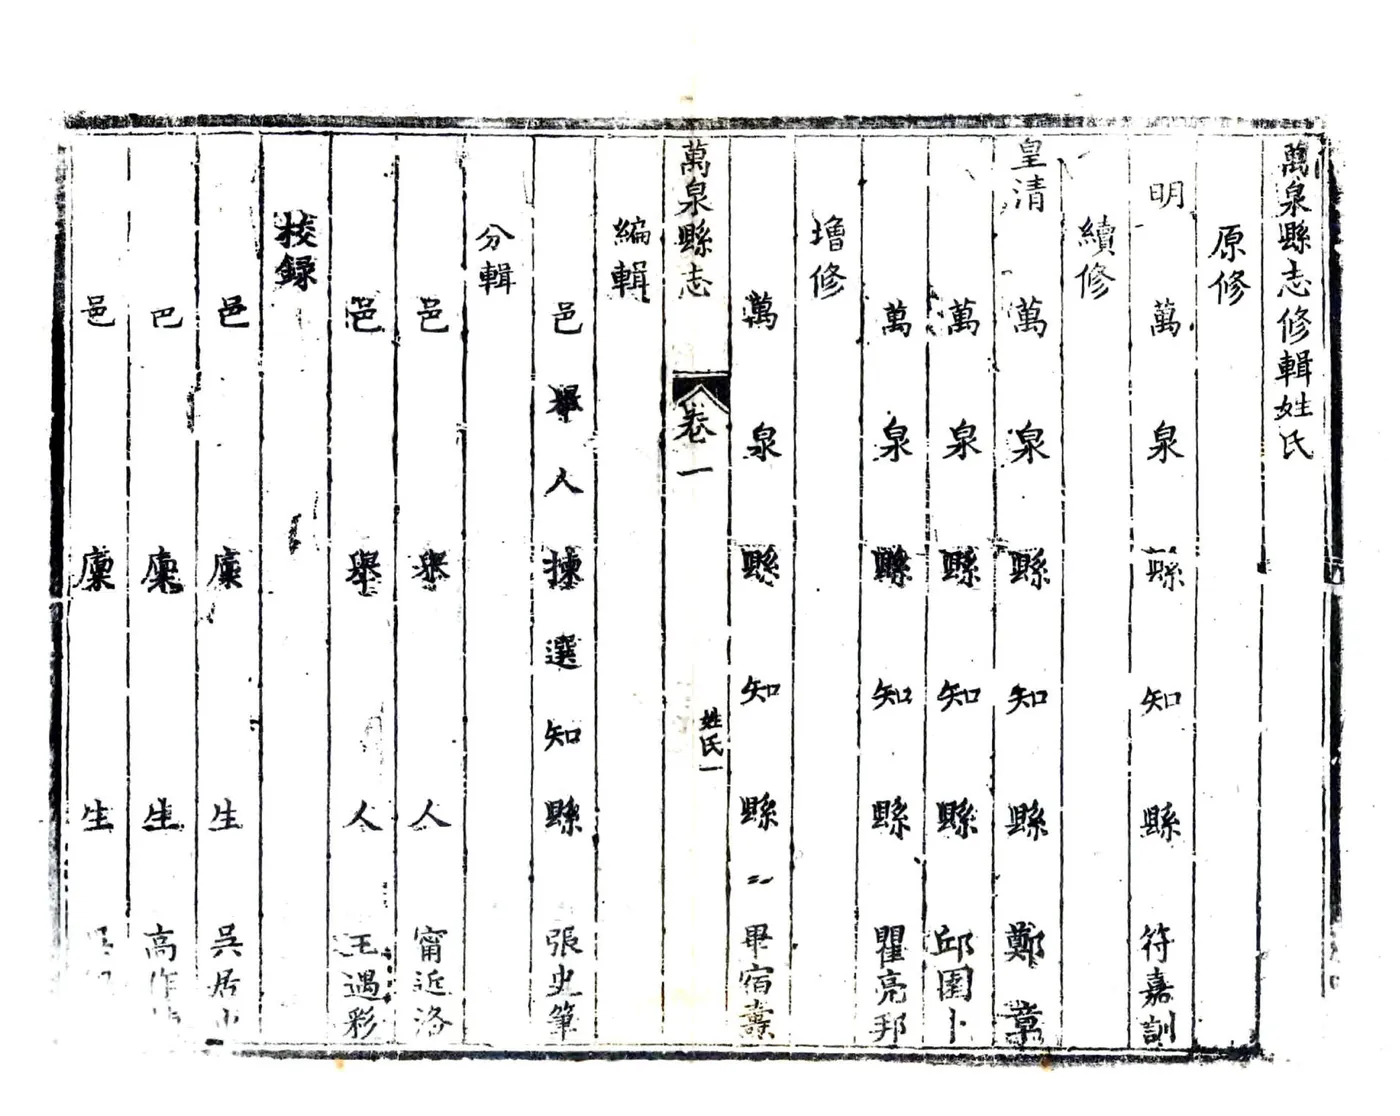 萬泉縣志修輯姓氏
原修
明 萬泉縣知縣 符嘉訓
續修
皇清 萬泉縣知縣 鄭章
萬泉縣知縣 邱園卜
萬泉縣知縣 瞿亮邦
增修
萬泉縣知縣 畢宿燾
萬泉縣志 卷一 姓氏一
編輯
邑舉人揀選知縣 張史筆
分輯
邑舉人 甯近洛
邑舉人 王遇彩
校録
邑廩生 吳居
邑廩生 高作
邑廩生